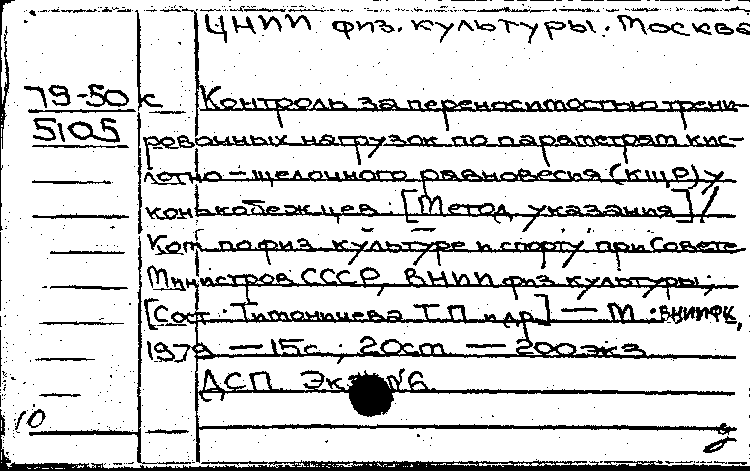 ЦНИИ физ. культуры. Москва
79-50к Контроль за переносимостью трени-
5105 ровочных нагрузок по параметрам кис-
лотно-щелочного равновесия (кщр) у
конькобежцев: [Метод. указания] /
Ком. по физ. культуре и спорту при Совете
Министров СССР, ВНИИ физ. культуры;
[Сост.: Тихоничева Т.П. и др.] — М.: ВНИИФК,
1979 — 15с.; 20см. — 200экз.
ДСП. Экз. №6.
10